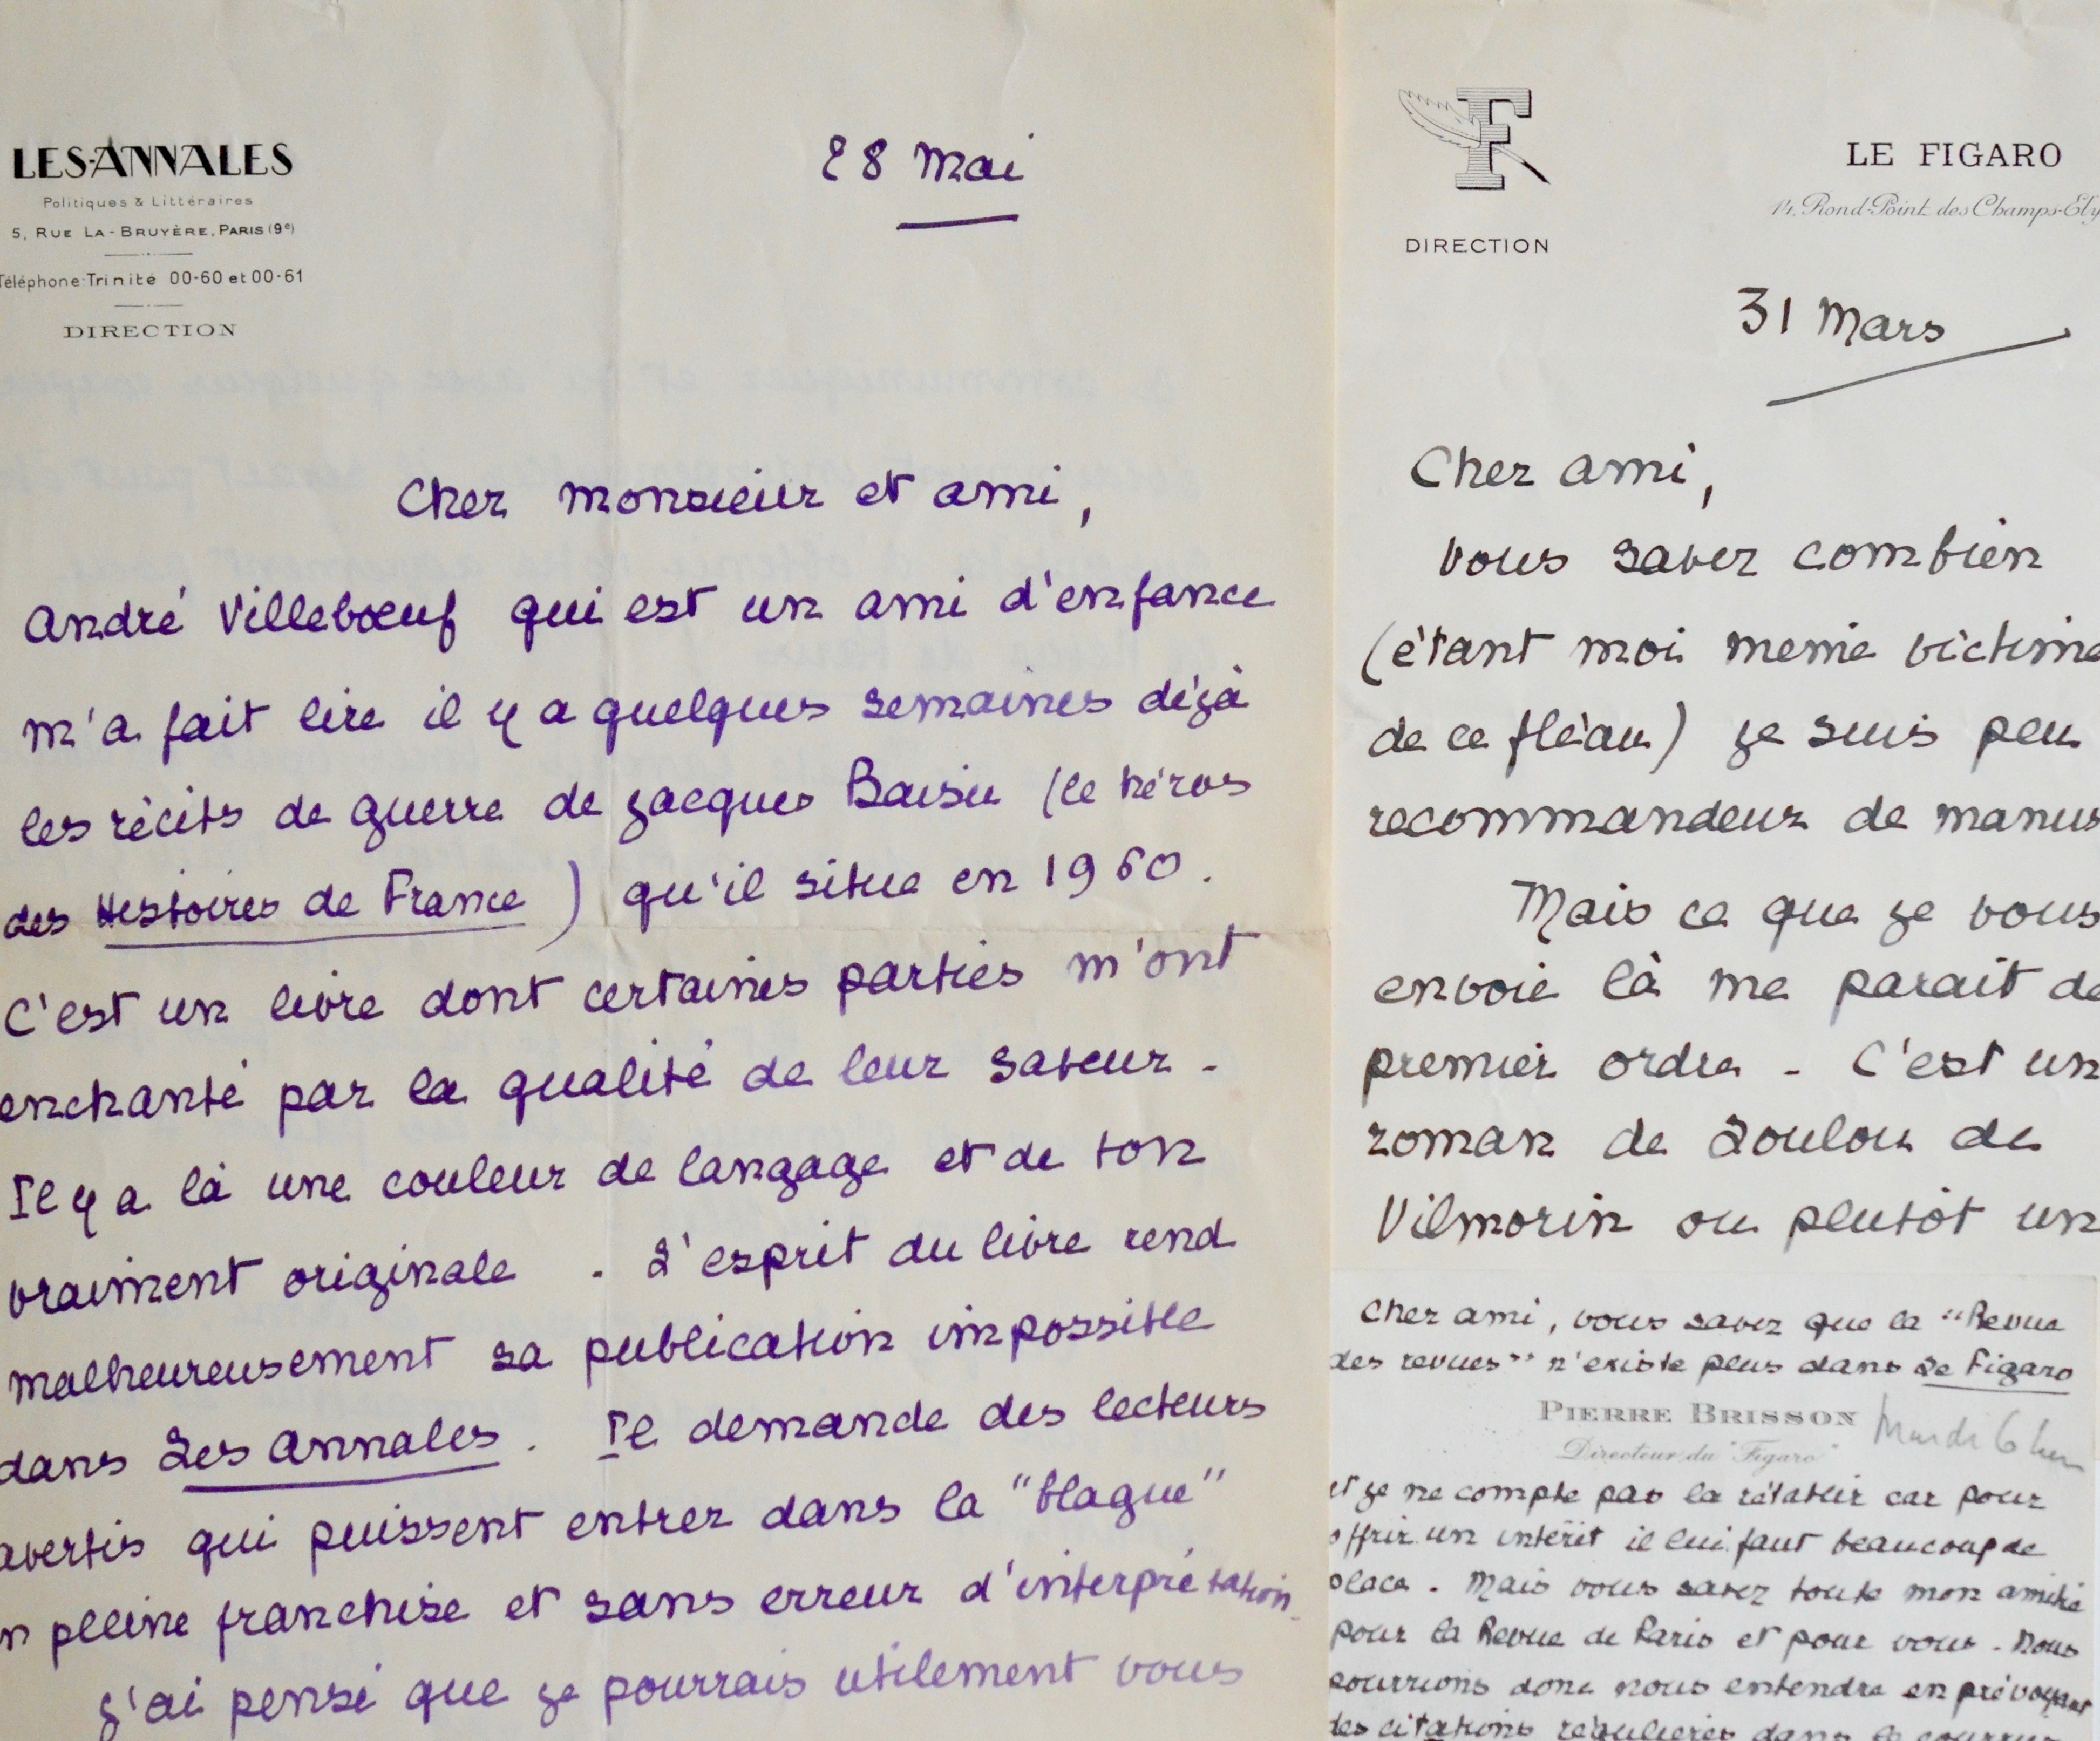 LES ANNALES
Politiques & Littéraires
5, RUE LA-BRUYÈRE, PARIS (9e)
Téléphone: Trinité 00-60 et 00-61
DIRECTION
28 Mai
Cher Monsieur et ami,
André Villebœuf qui est un ami d'enfance
m'a fait lire il y a quelques semaines déjà
les récits de guerre de Jacques Baisu (le héros
des Histoires de France) qu'il situe en 1960.
C'est un livre dont certaines parties m'ont
enchanté par la qualité de leur saveur.
Il y a là une couleur de langage et de ton
vraiment originale. L'esprit du livre rend
malheureusement sa publication impossible
dans Les Annales. Il demande des lecteurs
avertis qui puissent entrer dans la "blague"
n pleine franchise et sans erreur d'interprétation.
J'ai pensé que je pourrais utilement vous
F
DIRECTION
LE FIGARO
14, Rond-Point des Champs-Ely
31 Mars
Cher ami,
vous savez combien
(étant moi meme victime
de ce fléau) je suis peu
recommandeur de manus
Mais ce que je vous
envoie là me parait de
premier ordre - C'est un
roman de Loulou de
Vilmorin ou plutôt un
Cher ami, vous savez que la "Revue
des revues" n'existe plus dans Le Figaro
PIERRE BRISSON
Directeur du "Figaro"
et je ne compte pas la rétablir car pour
offrir un intérêt il lui faut beaucoup de
place. Mais vous savez toute mon amitié
pour la Revue de Paris et pour vous. Nous
pourrions donc nous entendre en prévoyant
des citations régulières dans le courrier